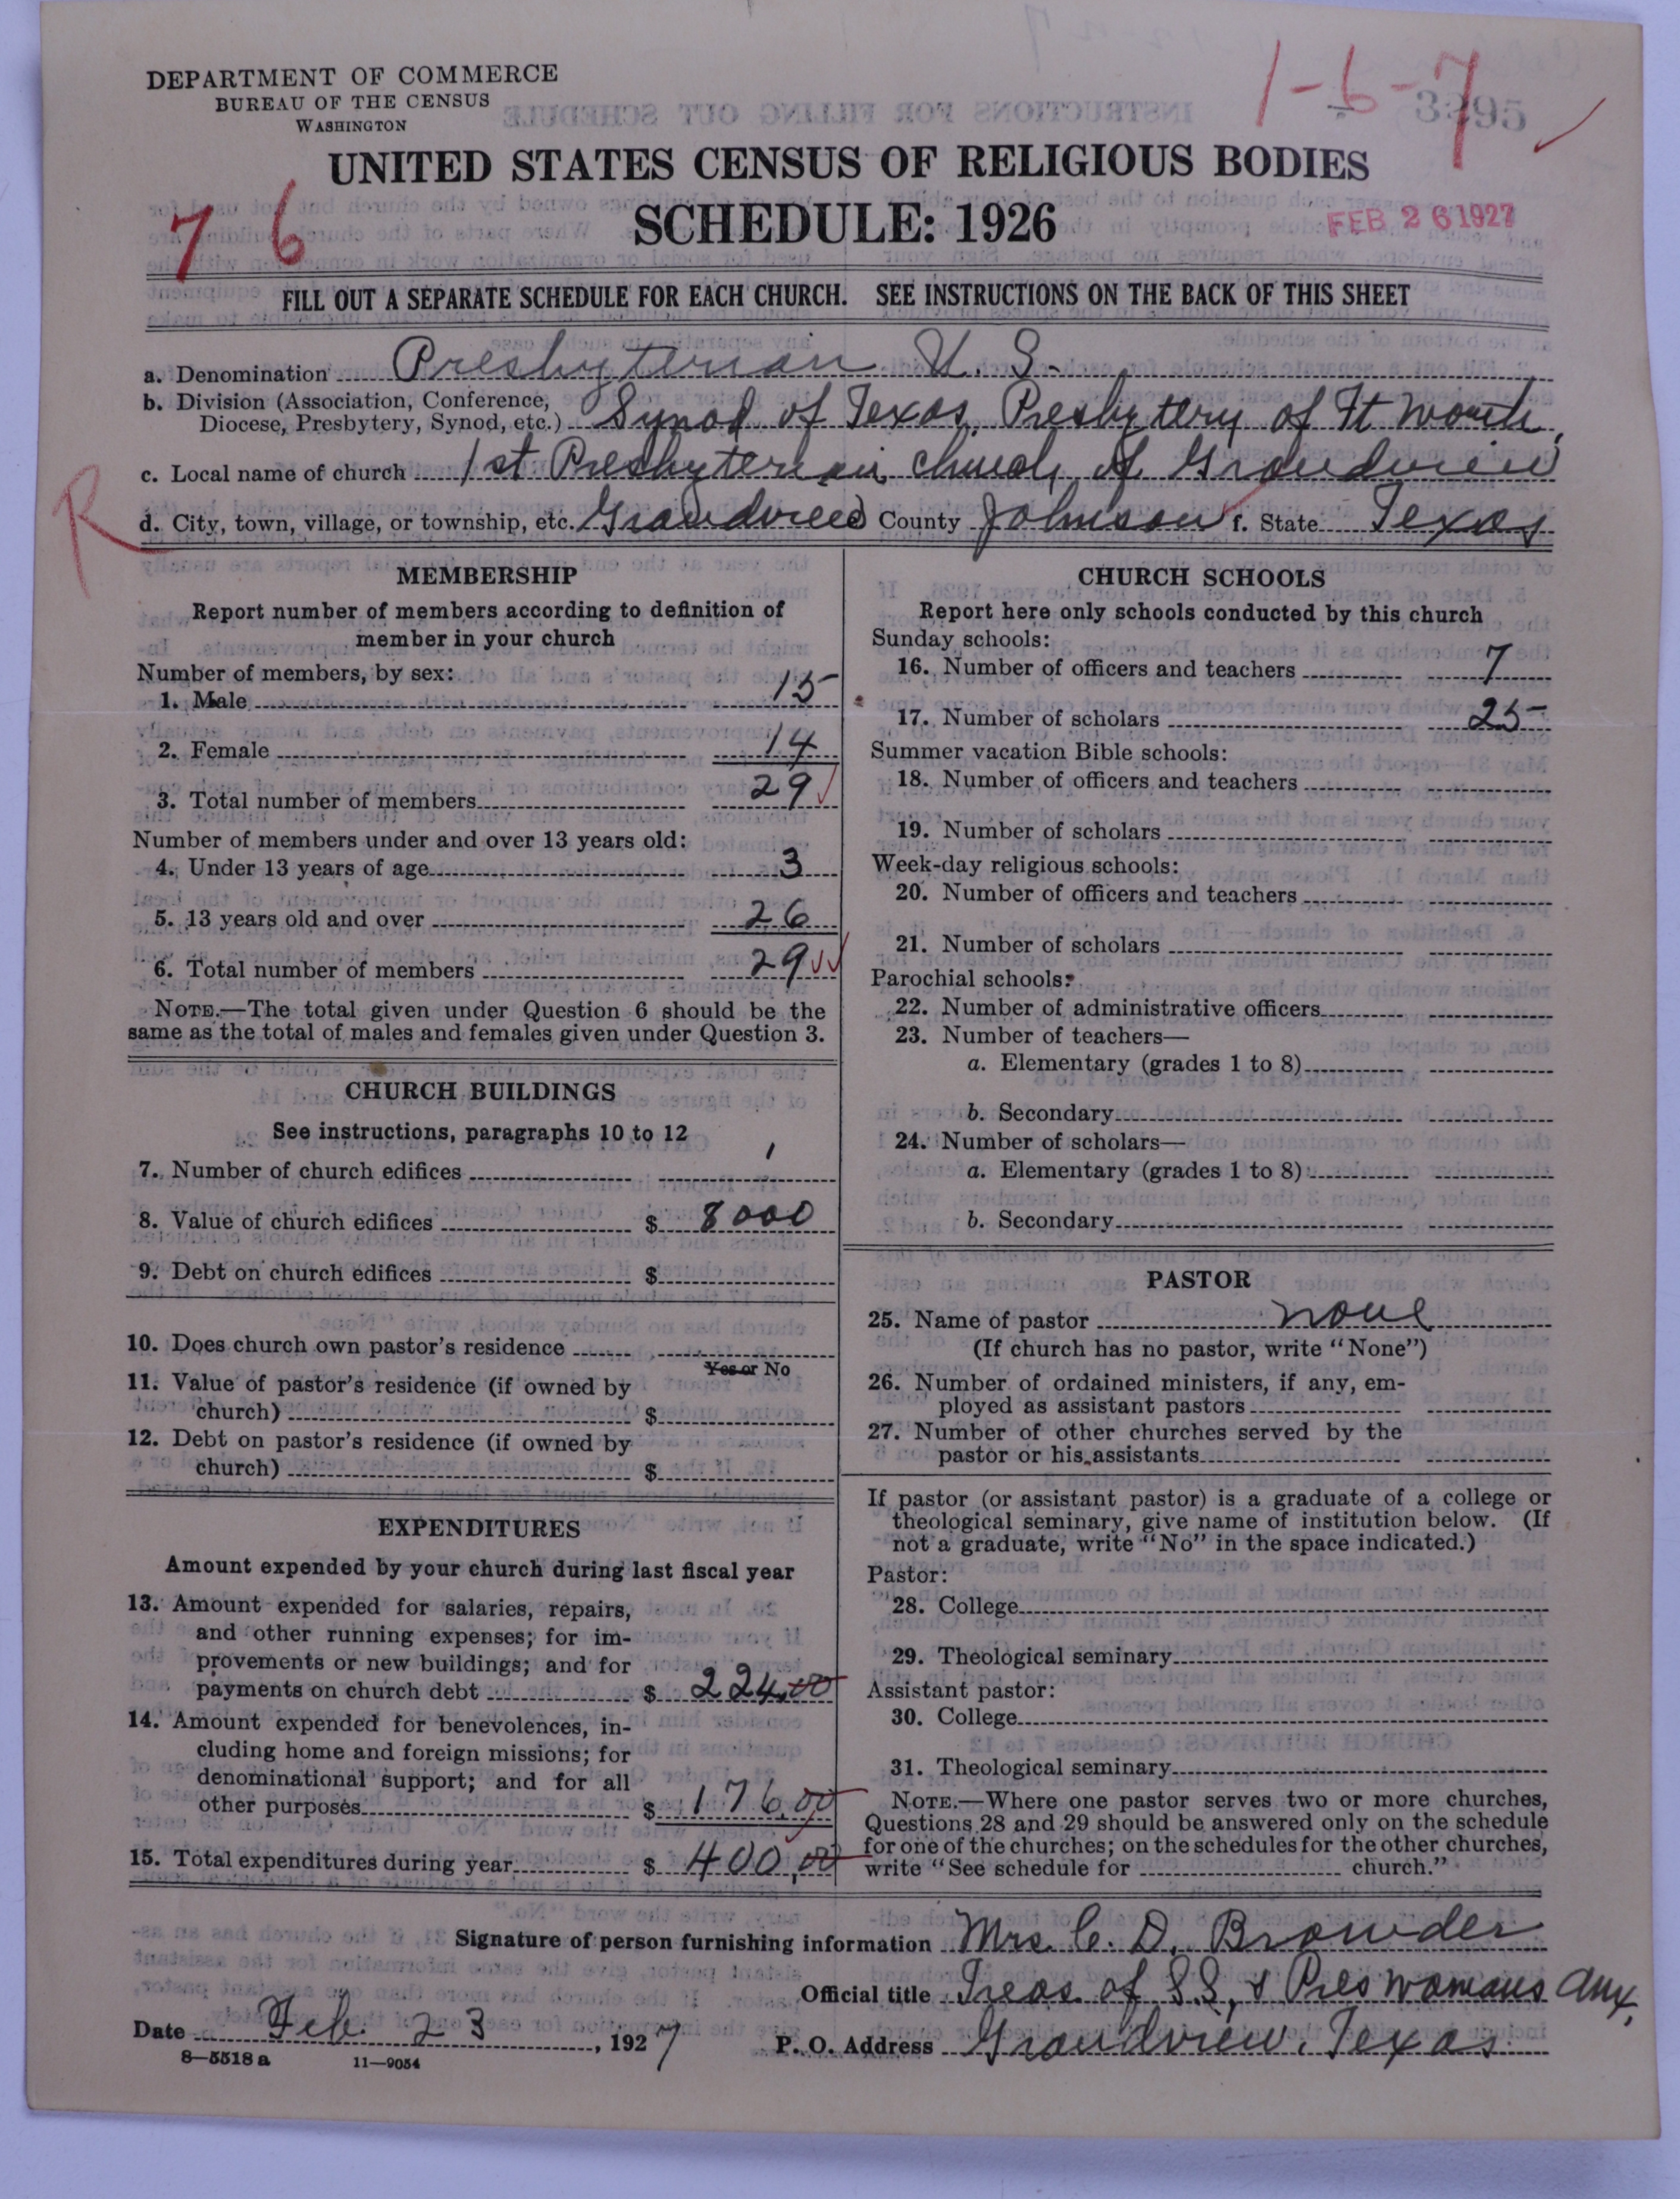 DEPARTMENT OF COMMERCE
BUREAU OF THE CENSUS
WASHINGTON
1-6-7
UNITED STATES CENSUS OF RELIGIOUS BODIES
SCHEDULE: 1926
7 6
FEB 26 1927
FILL OUT A SEPARATE SCHEDULE FOR EACH CHURCH. SEE INSTRUCTIONS ON THE BACK OF THIS SHEET
a. Denomination Presbyterian U. S.
b. Division (Association, Conference, Diocese, Presbytery, Synod, etc.) Synod of Texas, Presbytery of Ft Worth,
c. Local name of church 1st Presbyterian church of Grandview
R
d. City, town, village, or township, etc. Grandview County Johnson f. State Texas
MEMBERSHIP
Report number of members according to definition of
member in your church
Number of members, by sex:
1. Male 15
2. Female 14
3. Total number of members 29
Number of members under and over 13 years old:
4. Under 13 years of age 3
5. 13 years old and over 26
6. Total number of members 29
NOTE.—The total given under Question 6 should be the
same as the total of males and females given under Question 3.
CHURCH BUILDINGS
See instructions, paragraphs 10 to 12
7. Number of church edifices 1
8. Value of church edifices $ 8000
9. Debt on church edifices $
10. Does church own pastor's residence
Yes or No
11. Value of pastor's residence (if owned by
church) $
12. Debt on pastor's residence (if owned by
church) $
EXPENDITURES
Amount expended by your church during last fiscal year
13. Amount expended for salaries, repairs,
and other running expenses; for im-
provements or new buildings; and for
payments on church debt $ 224.00
14. Amount expended for benevolences, in-
cluding home and foreign missions; for
denominational support; and for all
other purposes $ 176.00
15. Total expenditures during year $ 400.00
CHURCH SCHOOLS
Report here only schools conducted by this church
Sunday schools:
16. Number of officers and teachers 7
17. Number of scholars 25
Summer vacation Bible schools:
18. Number of officers and teachers
19. Number of scholars
Week-day religious schools:
20. Number of officers and teachers
21. Number of scholars
Parochial schools:
22. Number of administrative officers
23. Number of teachers—
a. Elementary (grades 1 to 8)
b. Secondary
24. Number of scholars—
a. Elementary (grades 1 to 8)
b. Secondary
PASTOR
25. Name of pastor none
(If church has no pastor, write "None")
26. Number of ordained ministers, if any, em-
ployed as assistant pastors
27. Number of other churches served by the
pastor or his assistants
If pastor (or assistant pastor) is a graduate of a college or
theological seminary, give name of institution below. (If
not a graduate, write "No" in the space indicated.)
Pastor:
28. College
29. Theological seminary
Assistant pastor:
30. College
31. Theological seminary
NOTE.—Where one pastor serves two or more churches,
Questions 28 and 29 should be answered only on the schedule
for one of the churches; on the schedules for the other churches,
write "See schedule for church."
Signature of person furnishing information Mrs. C. D. Browder
Official title Treas of S.S, & Pres Womans Aux,
Date Feb. 23, 1927 P. O. Address Grandview, Texas
8—5518 a 11—9054